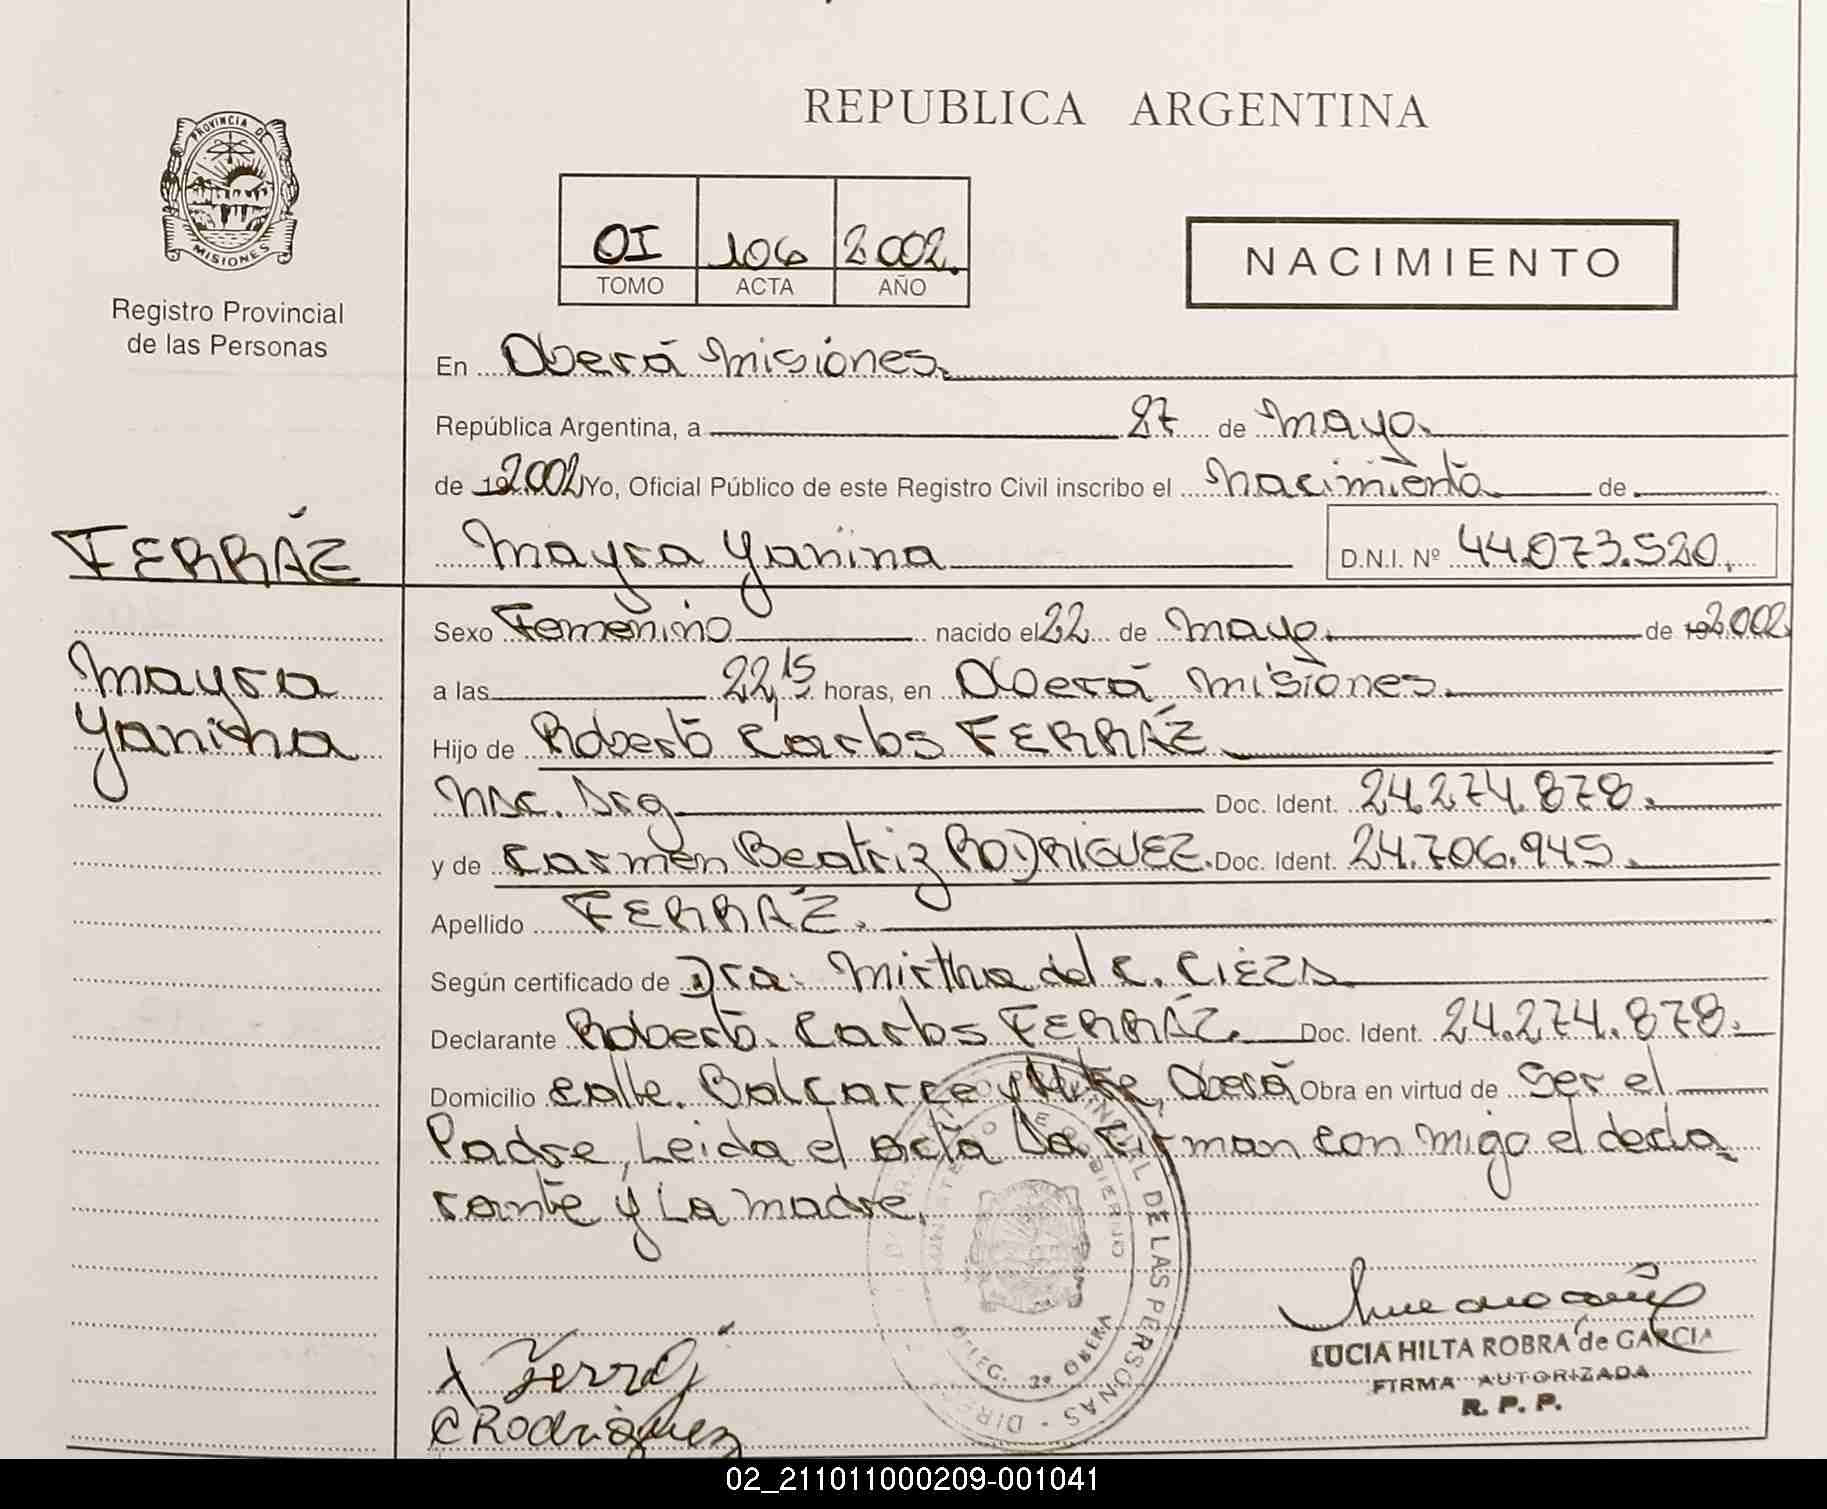 REPUBLICA ARGENTINA
PROVINCIA DE
MISIONES
Registro Provincial
de las Personas
OI 106 2002.
TOMO ACTA AÑO
NACIMIENTO
En Oberá Misiones.
República Argentina, a 27 de Mayo.
de 192002 Yo, Oficial Público de este Registro Civil inscribo el Nacimiento de
FERRÁZ
Mayra Yanina D.N.I. Nº 44.073.520.
Sexo Femenino nacido el 22 de Mayo. de 192002
Mayra
Yanina
a las 22,15 horas, en Oberá Misiones.
Hijo de Roberto Carlos FERRÁZ
Nac. Arg Doc. Ident. 24.274.878.
y de Carmen Beatriz RODRIGUEZ. Doc. Ident. 24.706.945.
Apellido FERRÁZ.
Según certificado de Dra. Mirtha del C. CIEZA
Declarante Roberto. Carlos FERRÁZ. Doc. Ident. 24.274.878.
Domicilio Calle. Balcarce y Mitre, Oberá Obra en virtud de Ser el
Padre, Leida el acta La Firman con migo el decla-
rante y La madre.
DE LAS PERSONAS
GOBIERNO
DELEG. 2ª OBERA
X Ferráz
C Rodriguez
LUCIA HILTA ROBRA de GARCIA
FIRMA AUTORIZADA
R. P. P.
02_211011000209-001041